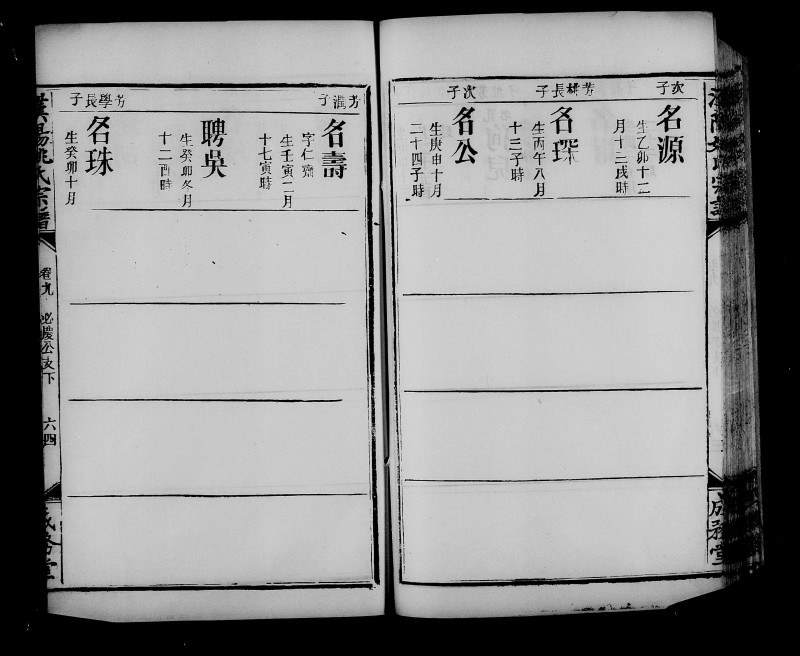 次子
名源
生乙卯十二
月十三戌時
芳桃長子
名琛
生丙午八月
十三子時
次子
名公
生庚申十月
二十四子時
成務堂
芳潤子
名壽
字仁齋
生壬寅二月
十七寅時
聘吳
生癸卯冬月
十二酉時
芳學長子
名珠
生癸卯十月
漢陽姚氏宗譜
卷九
公支下
六四
成務堂